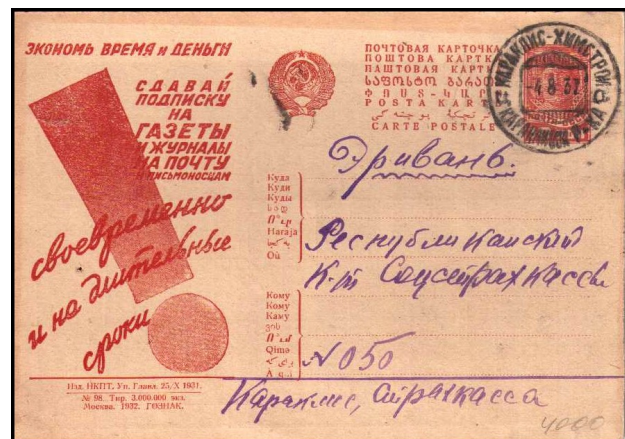 ЭКОНОМЬ ВРЕМЯ и ДЕНЬГИ
СДАВАЙ
ПОДПИСКУ
НА
ГАЗЕТЫ
И ЖУРНАЛЫ
НА ПОЧТУ
И ПИСЬМОНОСЦАМ
своевременно
и на длительные
сроки
Изд. НКПТ. Уп. Главл. 25/X 1931.
№ 98. Тир. 3.000.000 экз.
Москва. 1932. ГОЗНАК.
ПОЧТОВАЯ КАРТОЧКА
ПОШТОВА КАРТКА
ПАШТОВАЯ КАРТКА
POSTA KARTЬ
CARTE POSTALE
КАРАКЛИС-ХИМСТРОЙ
-4 8 32
Эривань.
Куда
Куди
Куды
Haraja
Où
Республиканский
К-т Соцстрахкассы
Кому
Кому
Каму
Qimə
N 050
Караклис, Страхкасса
4000